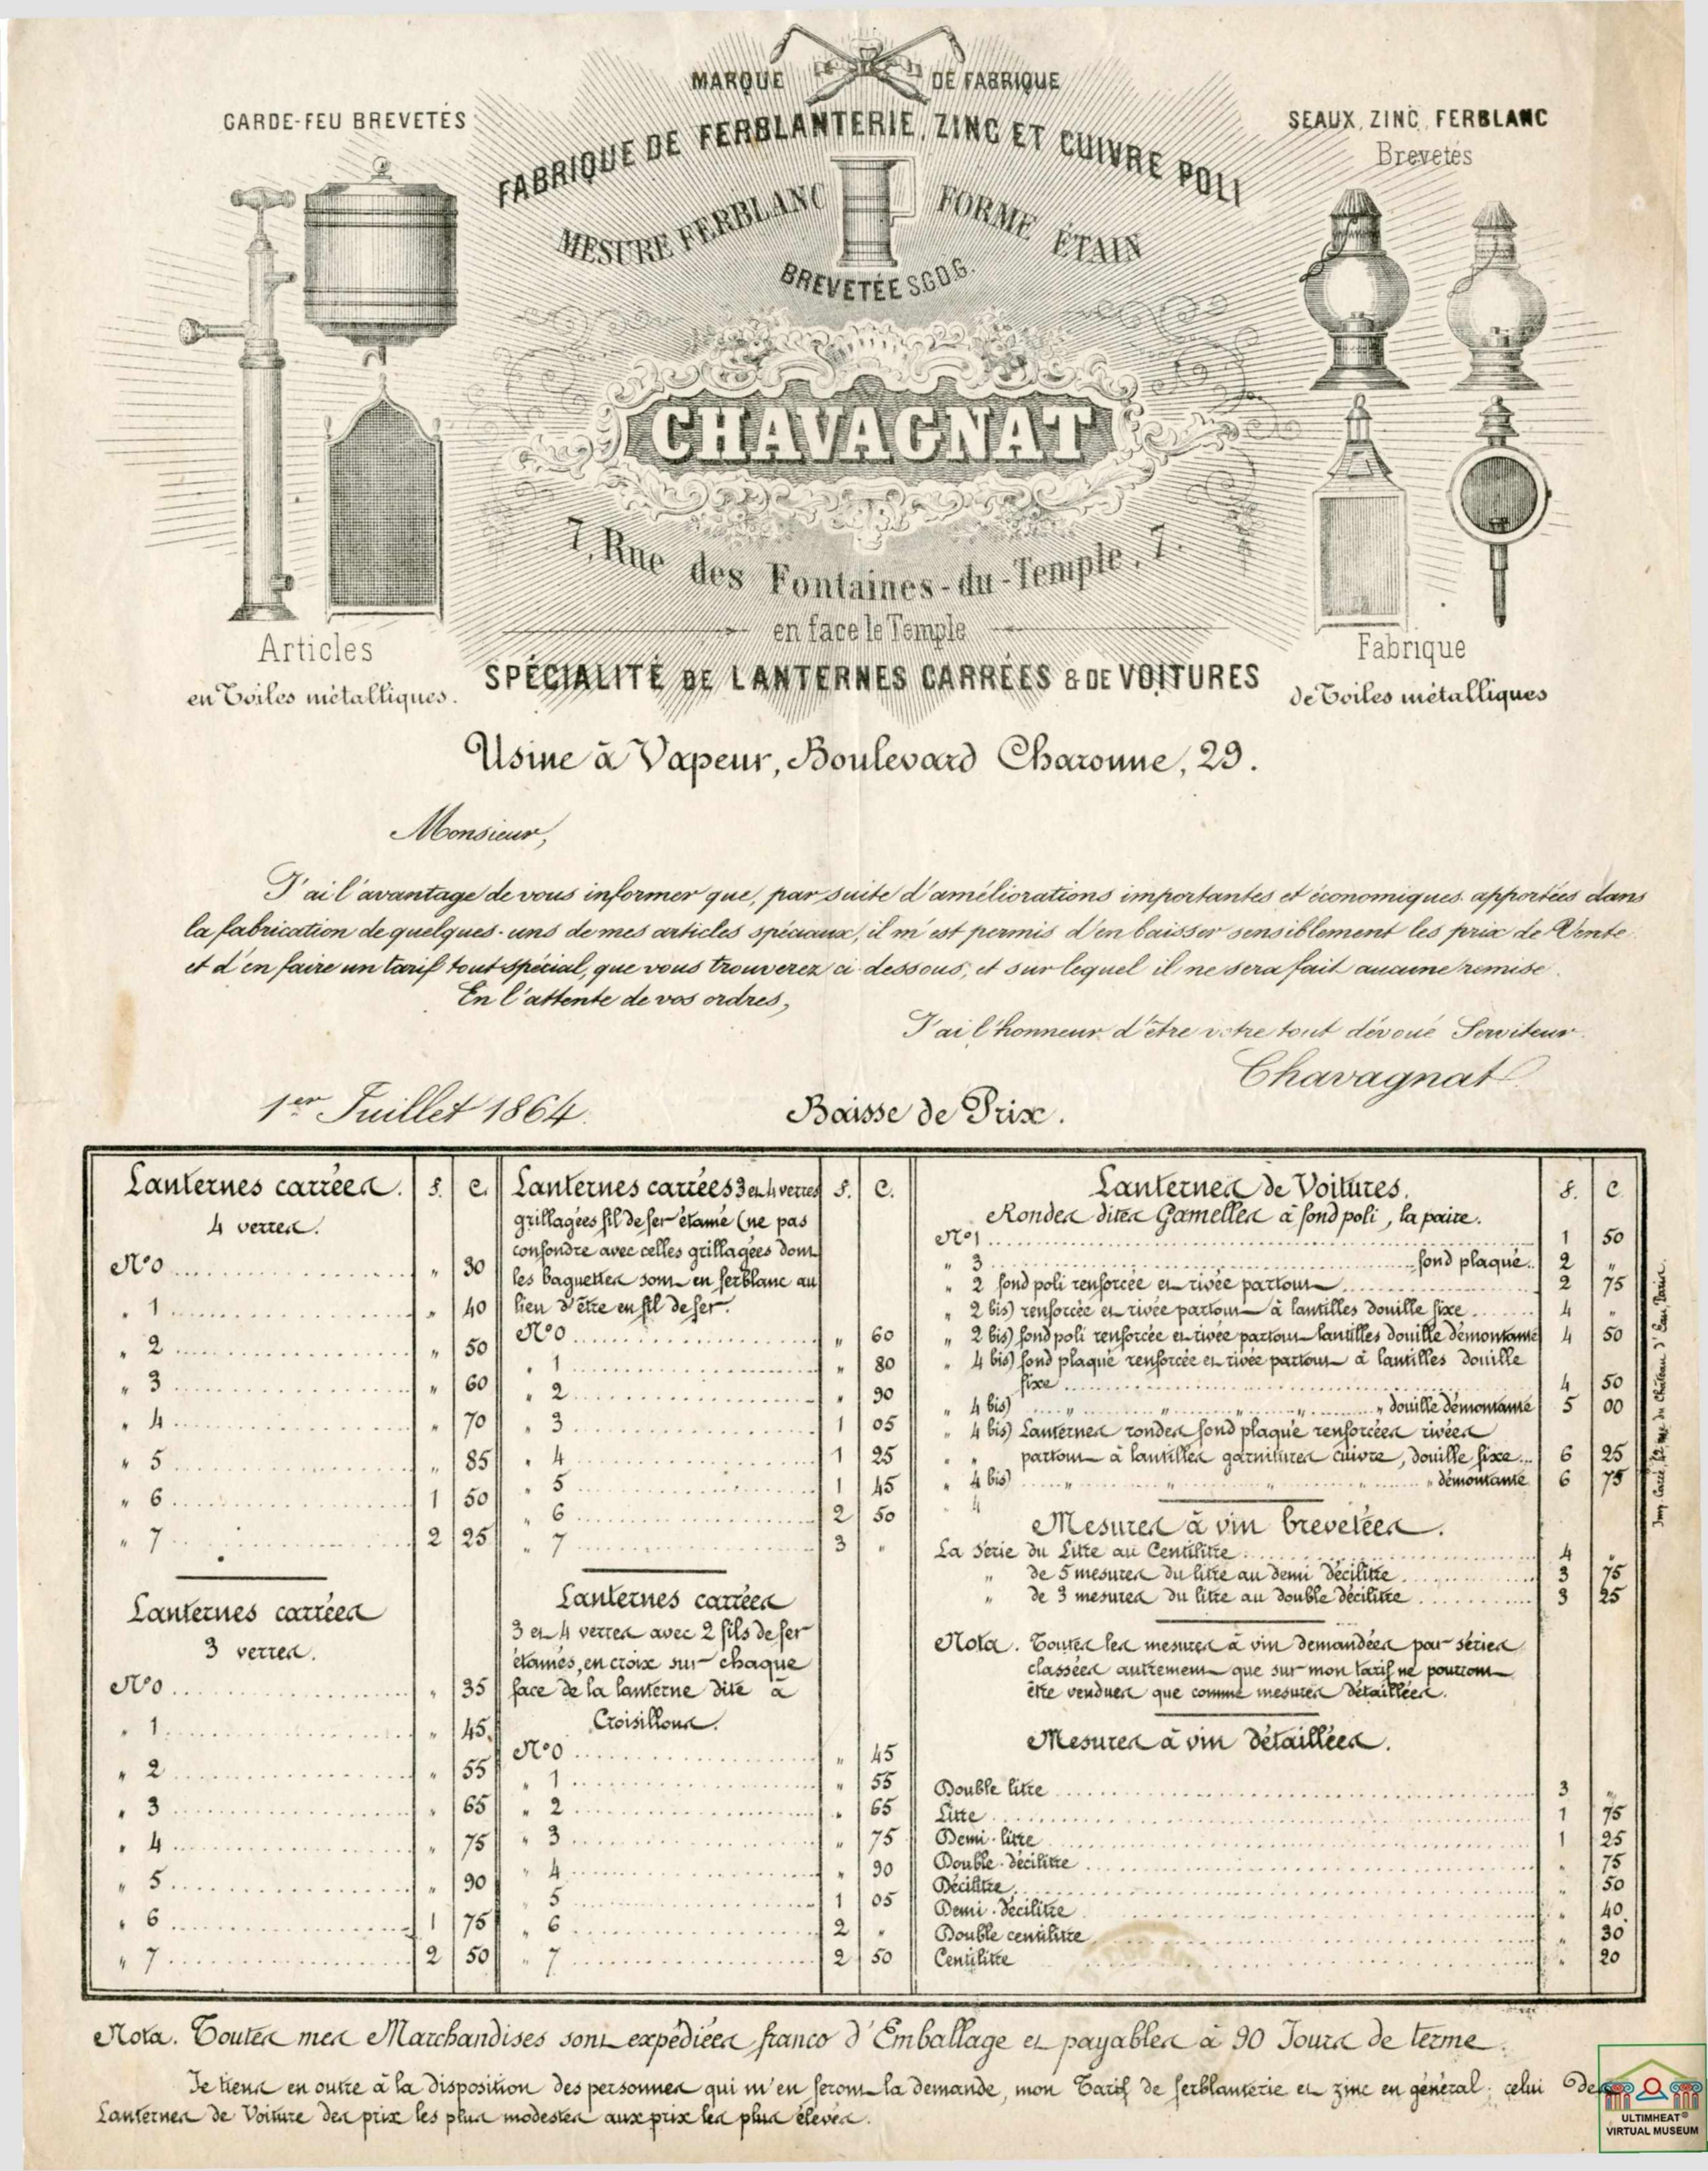 MARQUE DE FABRIQUE
GARDE-FEU BREVETÉS
SEAUX, ZINC, FERBLANC
Brevetés
FABRIQUE DE FERBLANTERIE, ZINC ET CUIVRE POLI
MESURE FERBLANC FORME ÉTAIN
BREVETÉE S.G.D.G.
CHAVAGNAT
7, Rue des Fontaines-du-Temple, 7.
en face le Temple
Articles
en Toiles métalliques.
SPÉCIALITÉ DE LANTERNES CARRÉES & DE VOITURES
Fabrique
de Toiles métalliques
Usine à Vapeur, Boulevard Charonne, 29.
Monsieur,
J'ai l'avantage de vous informer que, par suite d'améliorations importantes et économiques apportées dans
la fabrication de quelques-uns de mes articles spéciaux, il m'est permis d'en baisser sensiblement les prix de Vente
et d'en faire un tarif tout spécial, que vous trouverez ci-dessous, et sur lequel il ne sera fait aucune remise.
En l'attente de vos ordres,
J'ai l'honneur d'être votre tout dévoué Serviteur.
Chavagnat
1er Juillet 1864.
Baisse de Prix.
Lanternes carrées. f. c.
4 verres.
No 0 " 30
" 1 " 40
" 2 " 50
" 3 " 60
" 4 " 70
" 5 " 85
" 6 1 50
" 7 2 25
Lanternes carrées
3 verres.
No 0 " 35
" 1 " 45
" 2 " 55
" 3 " 65
" 4 " 75
" 5 " 90
" 6 1 75
" 7 2 50
Lanternes carrées 3 et 4 verres f. c.
grillagées fil de fer étamé (ne pas
confondre avec celles grillagées dont
les baguettes sont en ferblanc au
lieu d'être en fil de fer.
No 0 " 60
" 1 " 80
" 2 " 90
" 3 1 05
" 4 1 25
" 5 1 45
" 6 2 50
" 7 3 "
Lanternes carrées
3 et 4 verres avec 2 fils de fer
étamés, en croix sur chaque
face de la lanterne dite à
Croisillons.
No 0 " 45
" 1 " 55
" 2 " 65
" 3 " 75
" 4 " 90
" 5 1 05
" 6 2 "
" 7 2 50
Lanternes de Voitures. f. c
Rondes dites Gamelles à fond poli, la paire.
No 1 1 50
" 3 fond plaqué 2 "
" 2 fond poli renforcée et rivée partout 2 75
" 2 bis) renforcée et rivée partout à lantilles douille fixe 4 "
" 2 bis) fond poli renforcée et rivée partout lantilles douille démontante 4 50
" 4 bis) fond plaqué renforcée et rivée partout à lantilles douille
fixe 4 50
" 4 bis) " " " " " douille démontante 5 00
" 4 bis) Lanternes rondes fond plaqué renforcées rivées
" " partout à lantilles garnitures cuivre, douille fixe 6 25
" 4 bis) " " " " démontante 6 75
" 4
Mesures à vin brevetées.
La Série du Litre au Centilitre 4 "
" de 5 mesures du litre au demi décilitre 3 75
" de 3 mesures du litre au double décilitre 3 25
Nota. Toutes les mesures à vin demandées par séries
classées autrement que sur mon tarif ne pourront
être vendues que comme mesures détaillées.
Mesures à vin détaillées.
Double litre 3 "
Litre 1 75
Demi-litre 1 25
Double-décilitre " 75
Décilitre " 50
Demi-décilitre " 40
Double centilitre " 30
Centilitre " 20
rue du Château d'Eau, Paris.
Nota. Toutes mes Marchandises sont expédiées franco d'Emballage et payables à 90 Jours de terme.
Je tiens en outre à la disposition des personnes qui m'en feront la demande, mon Tarif de ferblanterie et zinc en général; celui des
Lanternes de Voiture des prix les plus modestes aux prix les plus élevés.
ULTIMHEAT®
VIRTUAL MUSEUM